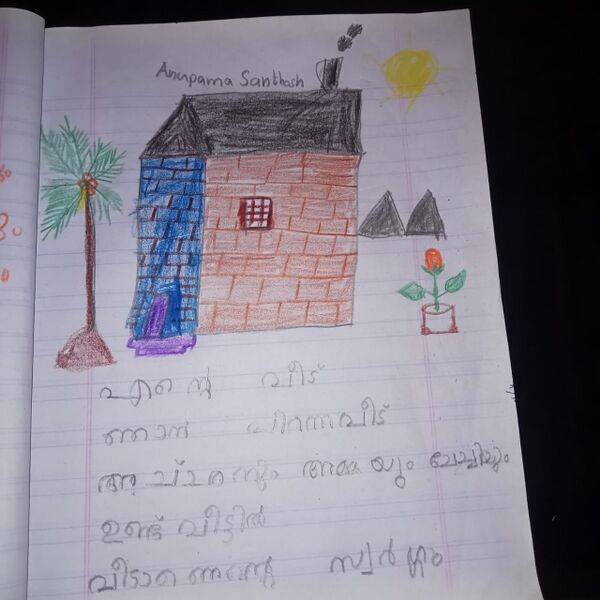 Anupama Santhosh
എന്റെ വീട്
ഞാൻ പിറന്നവീട്
അച്ഛനും അമ്മയും ചേച്ചിയും
ഉണ്ട് വീട്ടിൽ
വീടാണെന്റെ സ്വർഗ്ഗം